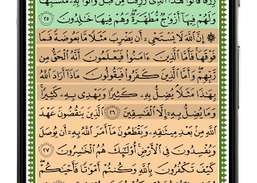 رِّزْقًا قَالُوا هَٰذَا الَّذِي رُزِقْنَا مِنْ قَبْلُ وَأُتُوا بِهِ مُتَشَابِهًا
وَلَهُمْ فِيهَا أَزْوَاجٌ مُّطَهَّرَةٌ وَّهُمْ فِيهَا خَٰلِدُونَ ﴿٢٥﴾
إِنَّ اللَّهَ لَا يَسْتَحْيٖ أَنْ يَّضْرِبَ مَثَلًا مَّا بَعُوضَةً فَمَا
فَوْقَهَا فَأَمَّا الَّذِينَ ءَامَنُوا فَيَعْلَمُونَ أَنَّهُ الْحَقُّ مِنْ
رَّبِّهِمْ وَأَمَّا الَّذِينَ كَفَرُوا فَيَقُولُونَ مَاذَا أَرَادَ اللَّهُ
بِهَٰذَا مَثَلًا يُضِلُّ بِهِ كَثِيرًا وَّيَهْدِي بِهِ كَثِيرًا
وَمَا يُضِلُّ بِهِ إِلَّا الْفَٰسِقِينَ ﴿٢٦﴾ الَّذِينَ يَنْقُضُونَ عَهْدَ
اللَّهِ مِنْ بَعْدِ مِيثَاقِهِ وَيَقْطَعُونَ مَا أَمَرَ اللَّهُ بِهِ أَنْ يُّوصَلَ
وَيُفْسِدُونَ فِي الْأَرْضِ أُولَٰئِكَ هُمُ الْخَٰسِرُونَ ﴿٢٧﴾
كَيْفَ تَكْفُرُونَ بِاللَّهِ وَكُنْتُمْ أَمْوَاتًا فَأَحْيَاكُمْ